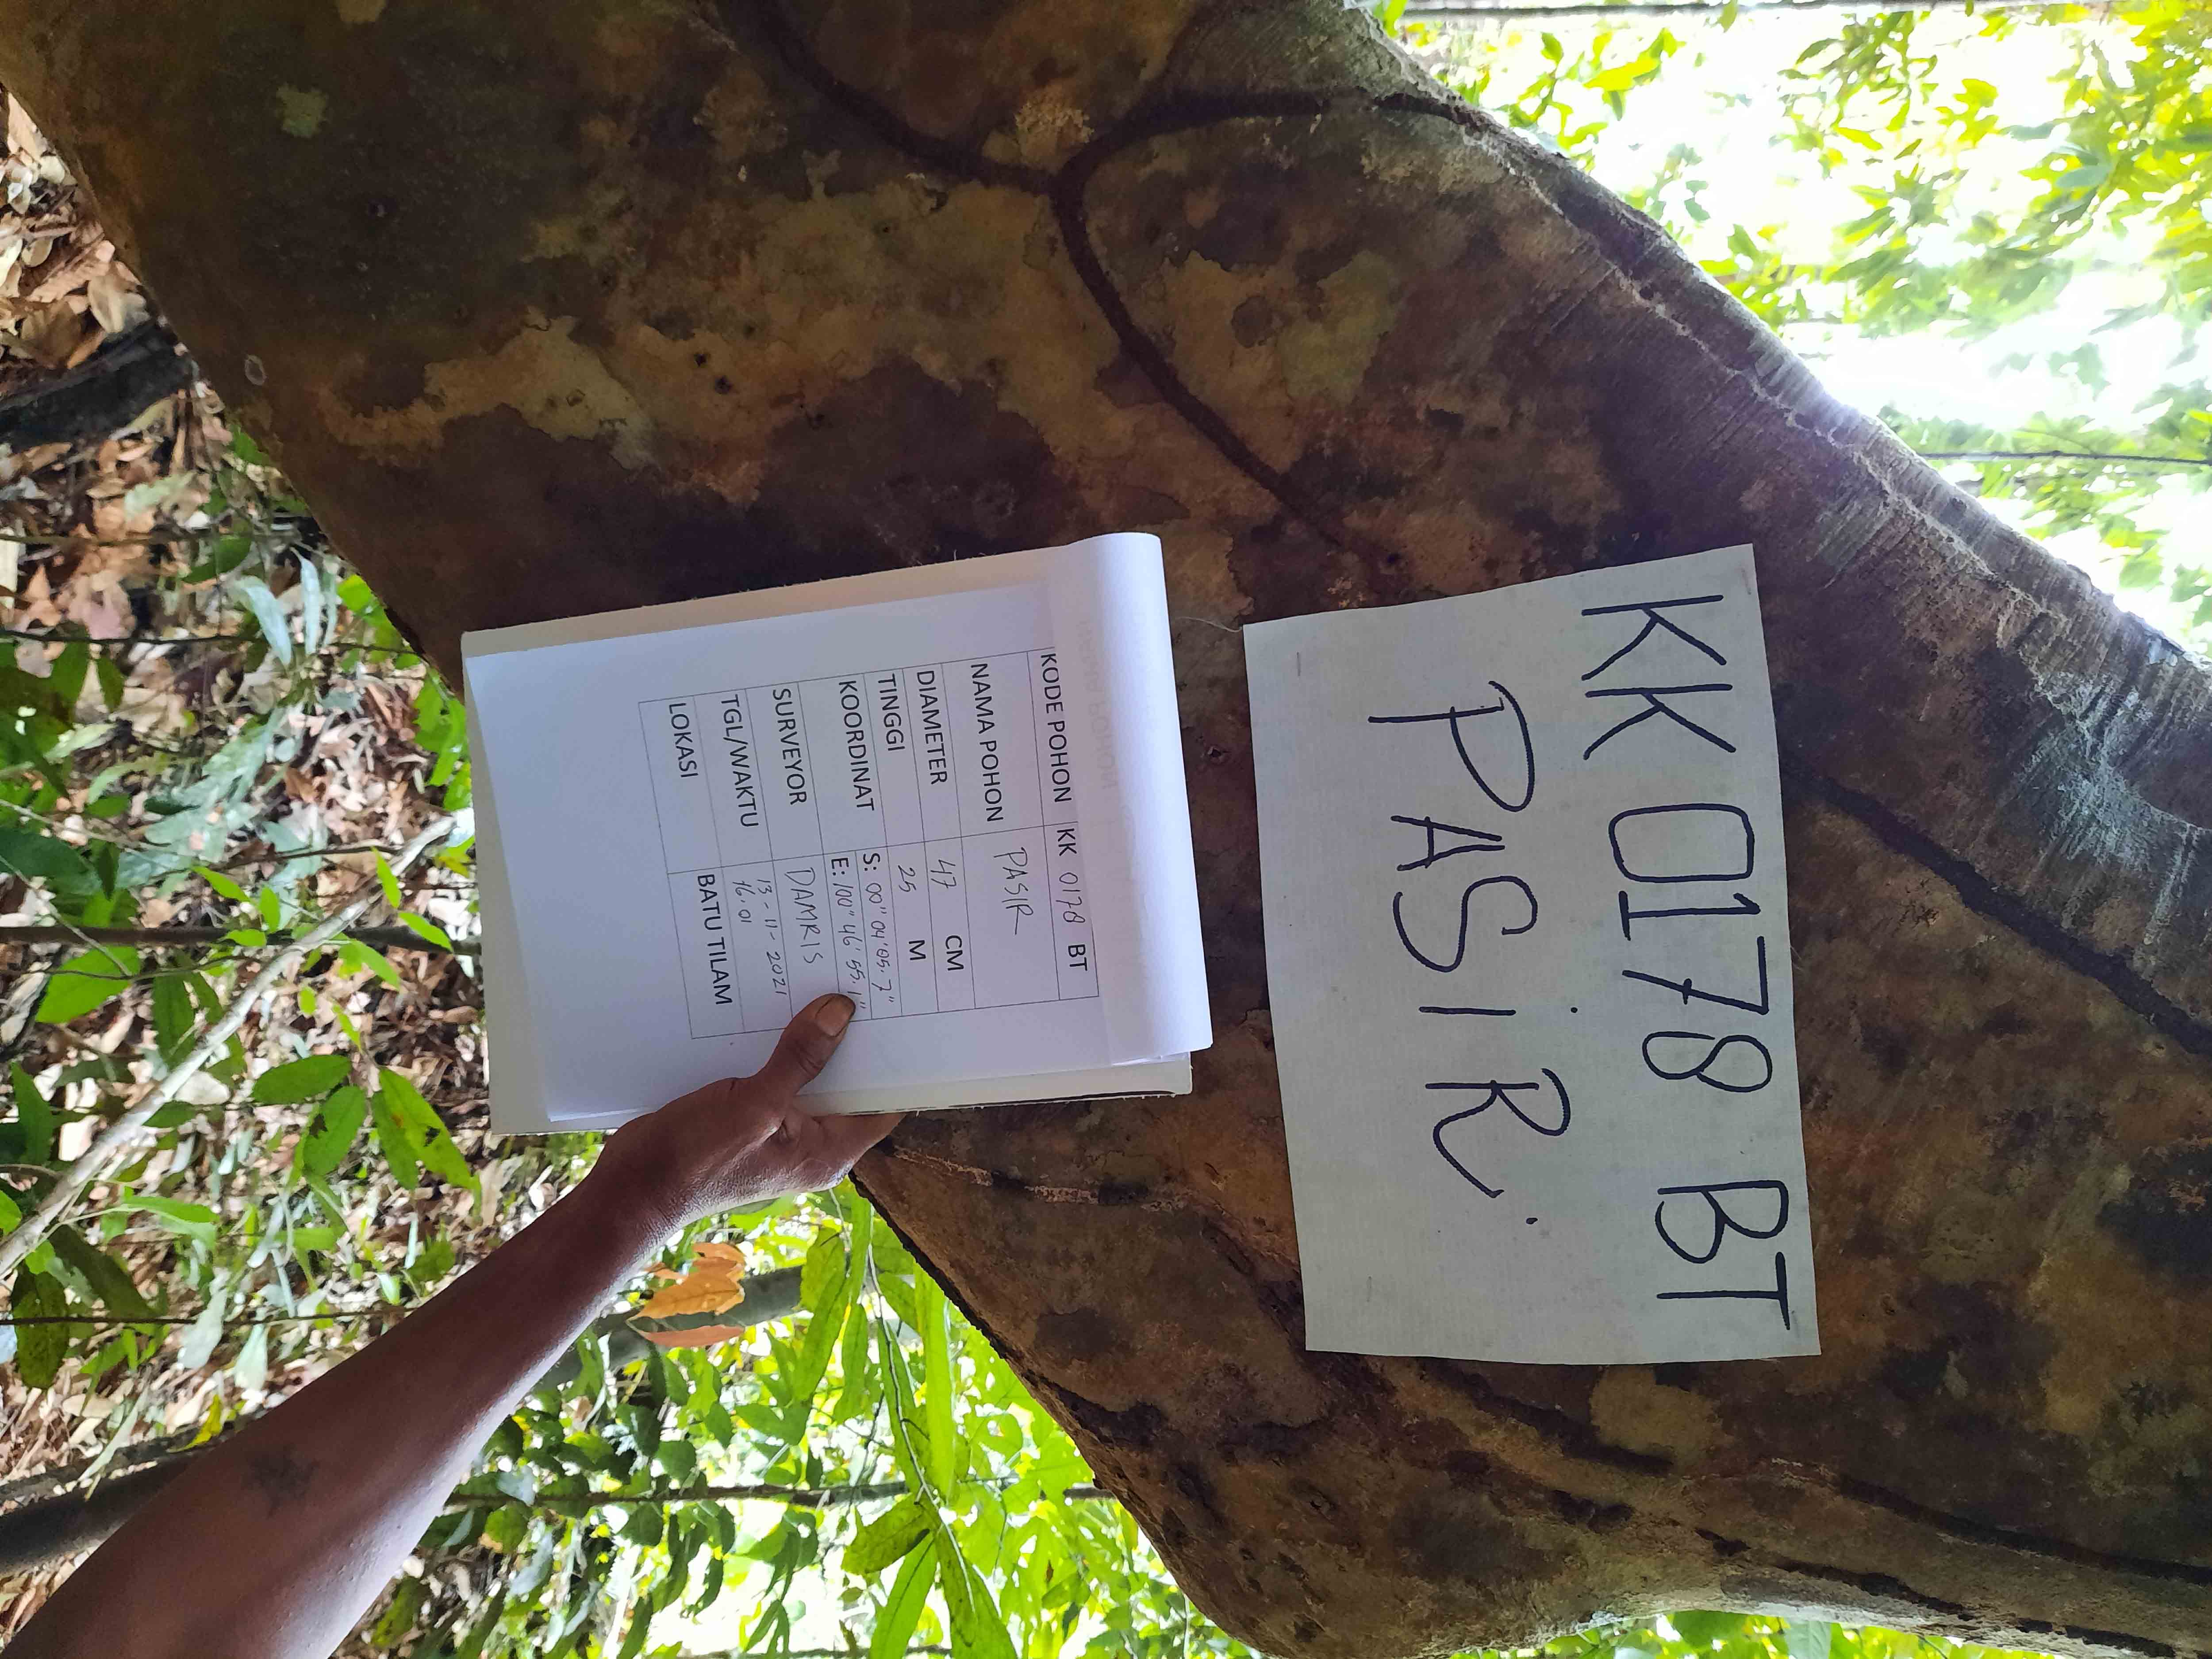 KK 0178 BT
PASiR.
KODE POHON KK 0178 BT
NAMA POHON PASIR
DIAMETER 47 CM
TINGGI 25 M
KOORDINAT S: 00" 04' 05.7"
E: 100" 46' 55.1"
SURVEYOR DAMRIS
TGL/WAKTU 13-11-2021
16.01
LOKASI BATU TILAM